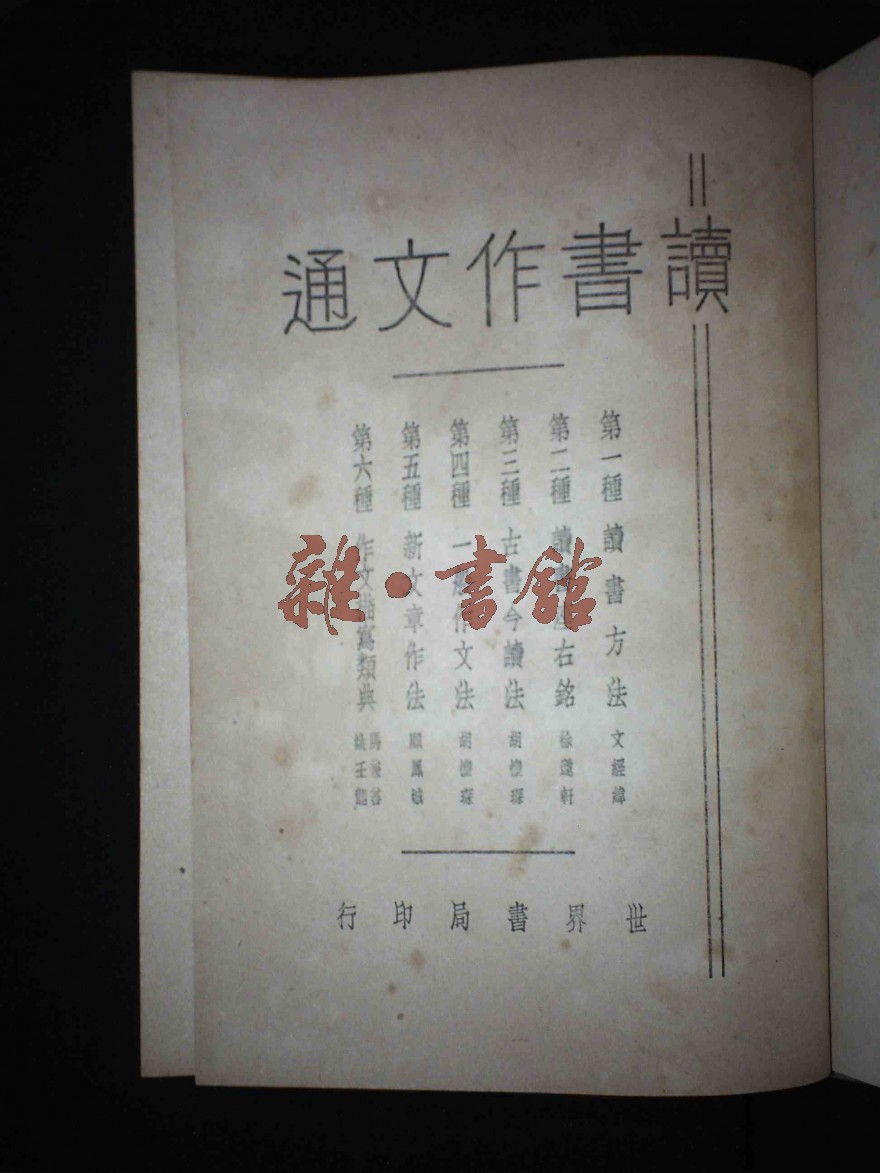 讀書作文通
第一種 讀書方法 文經緯
第二種 讀書座右銘 徐蘧軒
第三種 古書今讀法 胡懷琛
第四種 一般作文法 胡懷琛
第五種 新文章作法 顧鳳城
第六種 作文描寫類典
世界書局印行
雜·書館